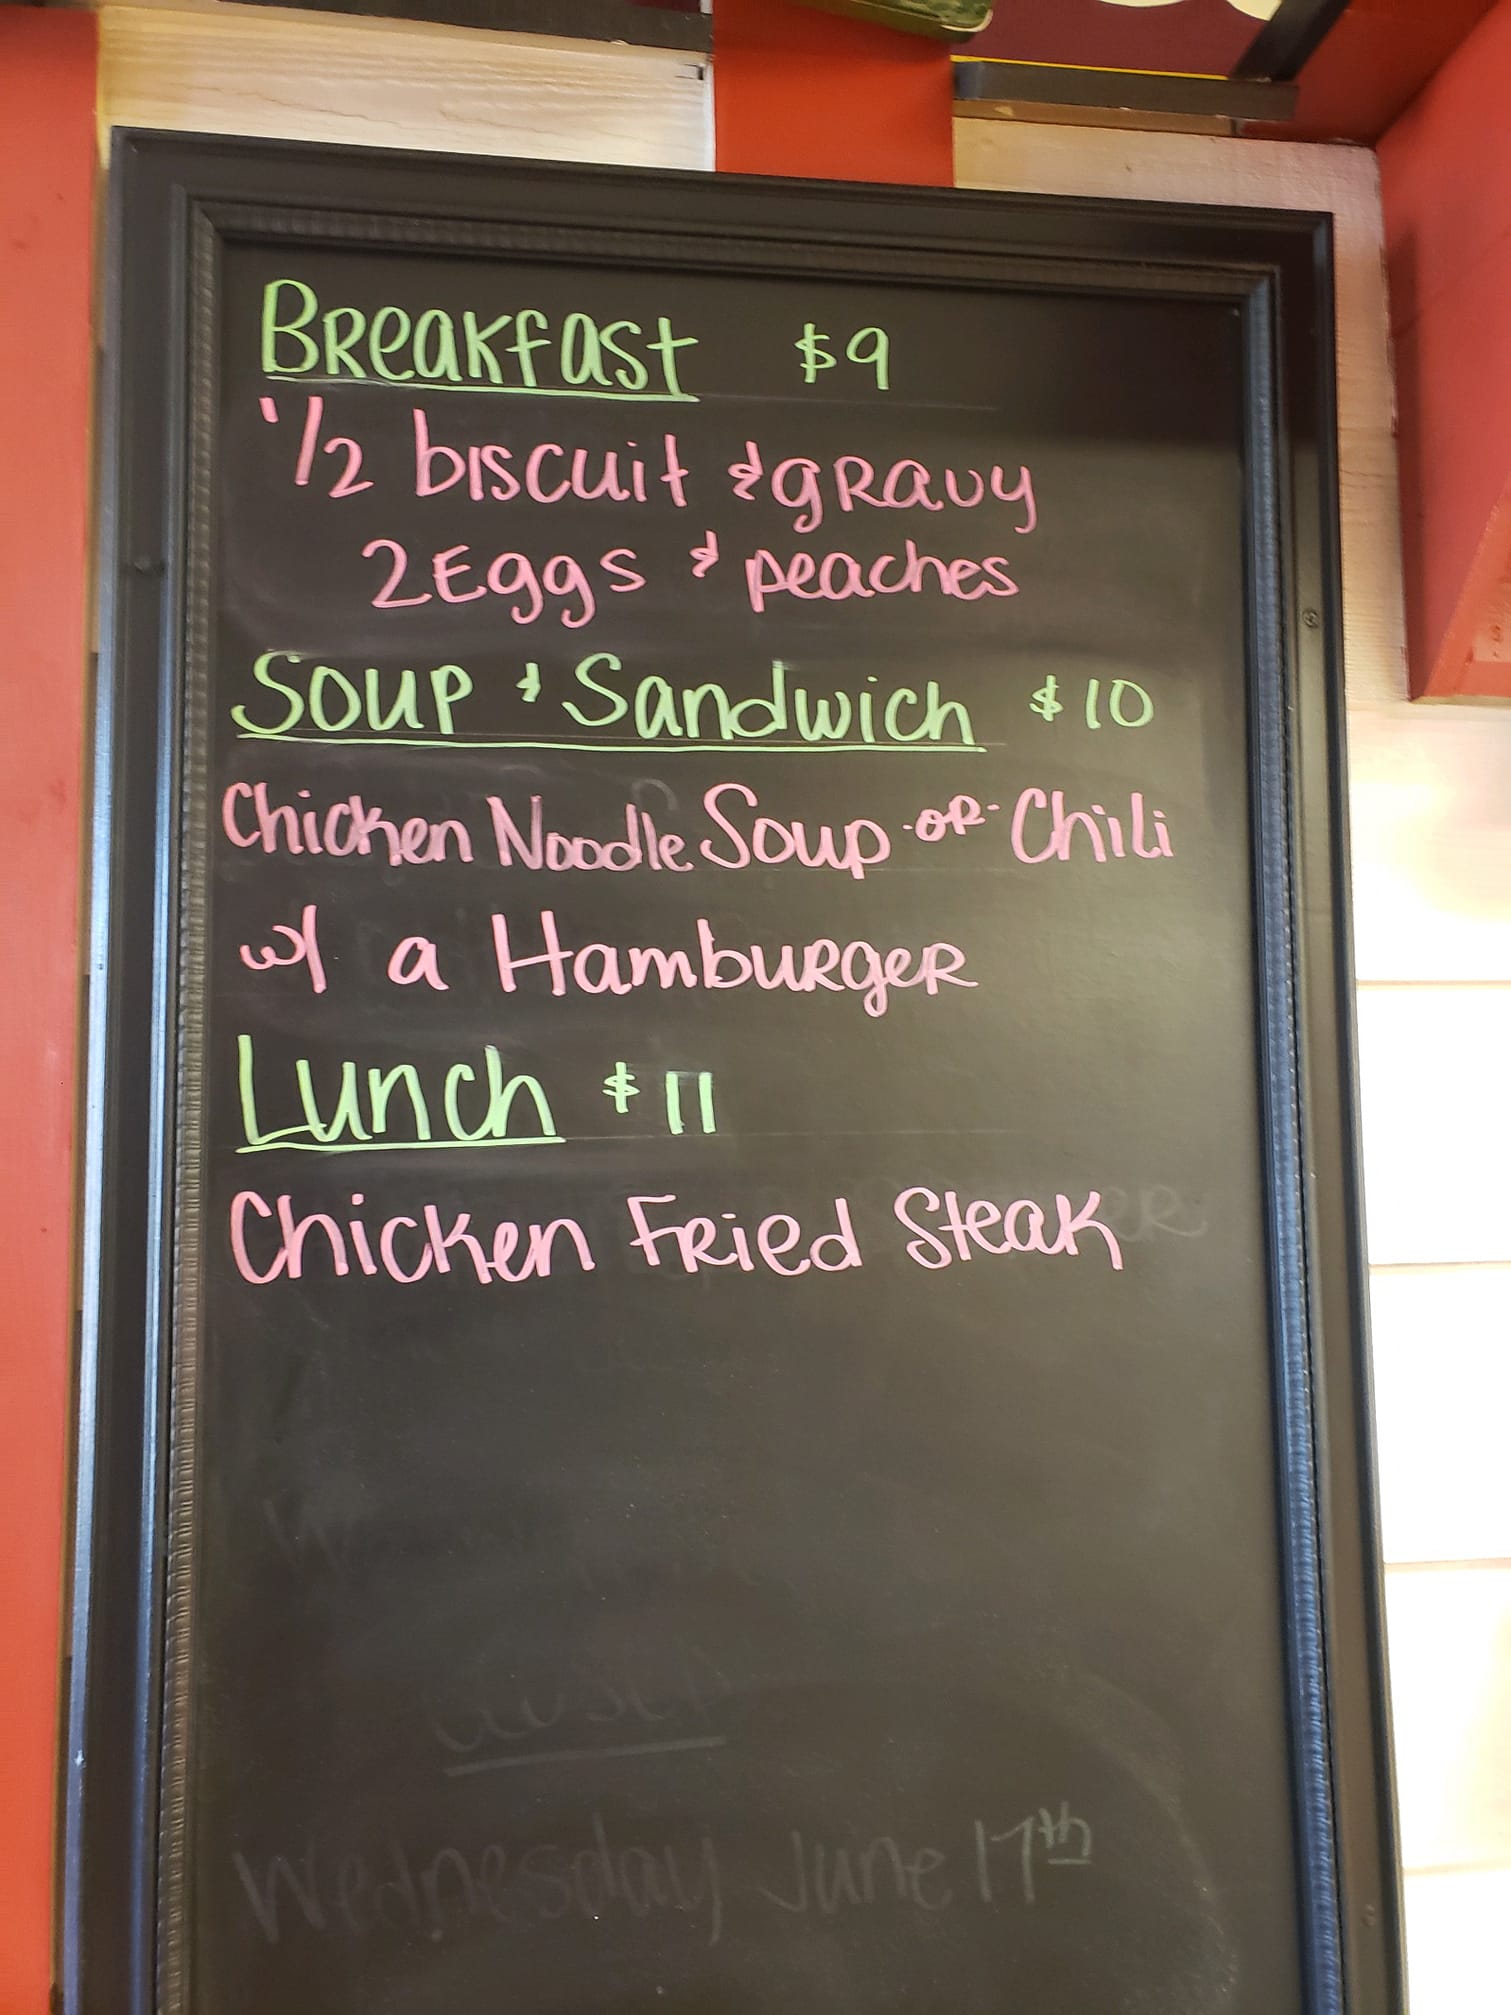 Breakfast $9
1/2 biscuit & gravy
2 Eggs & peaches
Soup & Sandwich $10
Chicken Noodle Soup -or- Chili
w/ a Hamburger
Lunch $11
Chicken Fried Steak
Wednesday June 17th